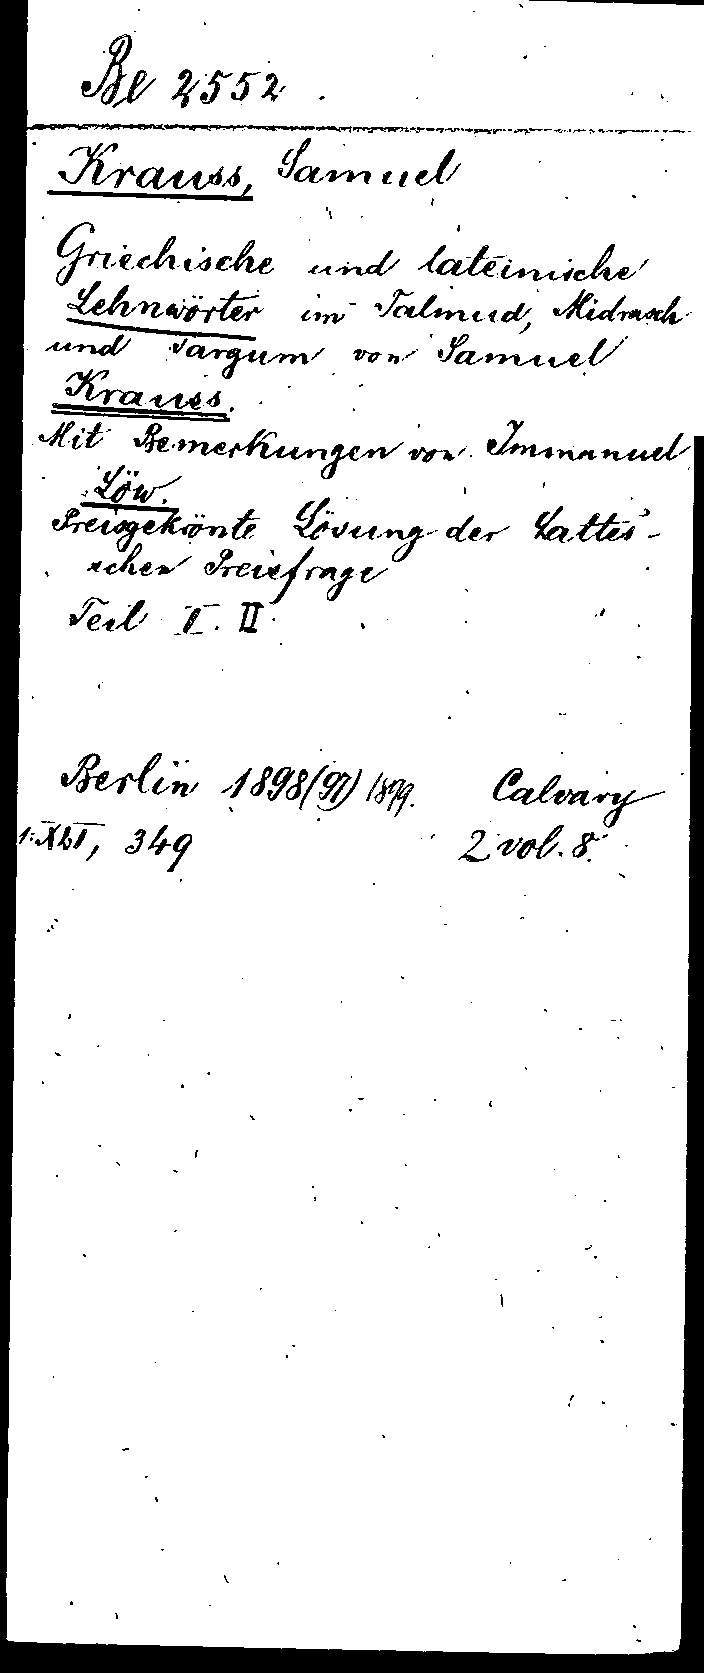 Be 2552
Krauss, Samuel
Griechische und lateinische
Lehnwörter im Talmud, Midrasch
und Targum von Samuel
Krauss.
Mit Bemerkungen von Immanuel
Löw.
Preisgekrönte Lösung der Lattes'-
schen Preisfrage
Teil I. II
Berlin 1898(97) 1899. Calvary
349
2 vol. 8.